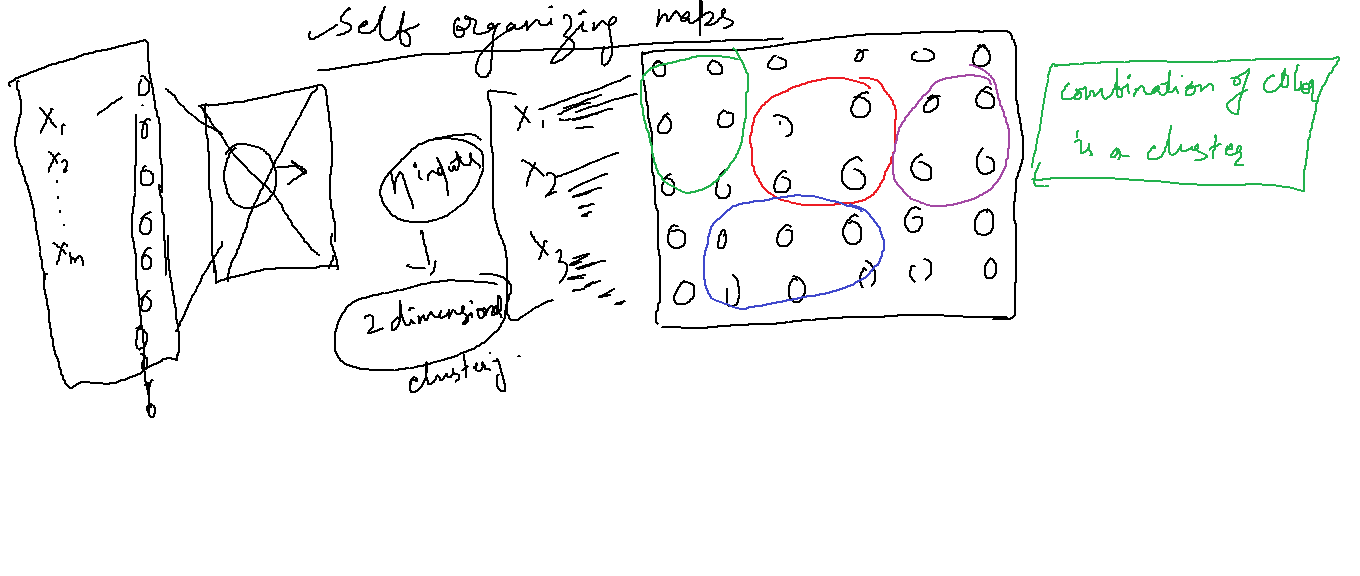 Self organizing maps
x1
x2
xm
n inputs
2 dimensional
clustering.
x1
x2
x3
combination of color
is a cluster